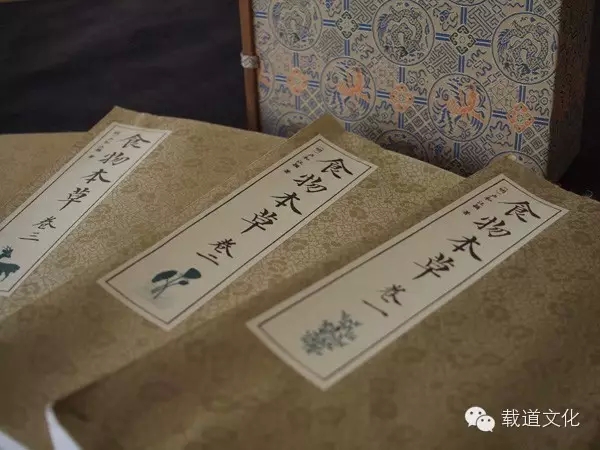 食物本草 卷一
食物本草 卷二
食物本草 卷三
载道文化